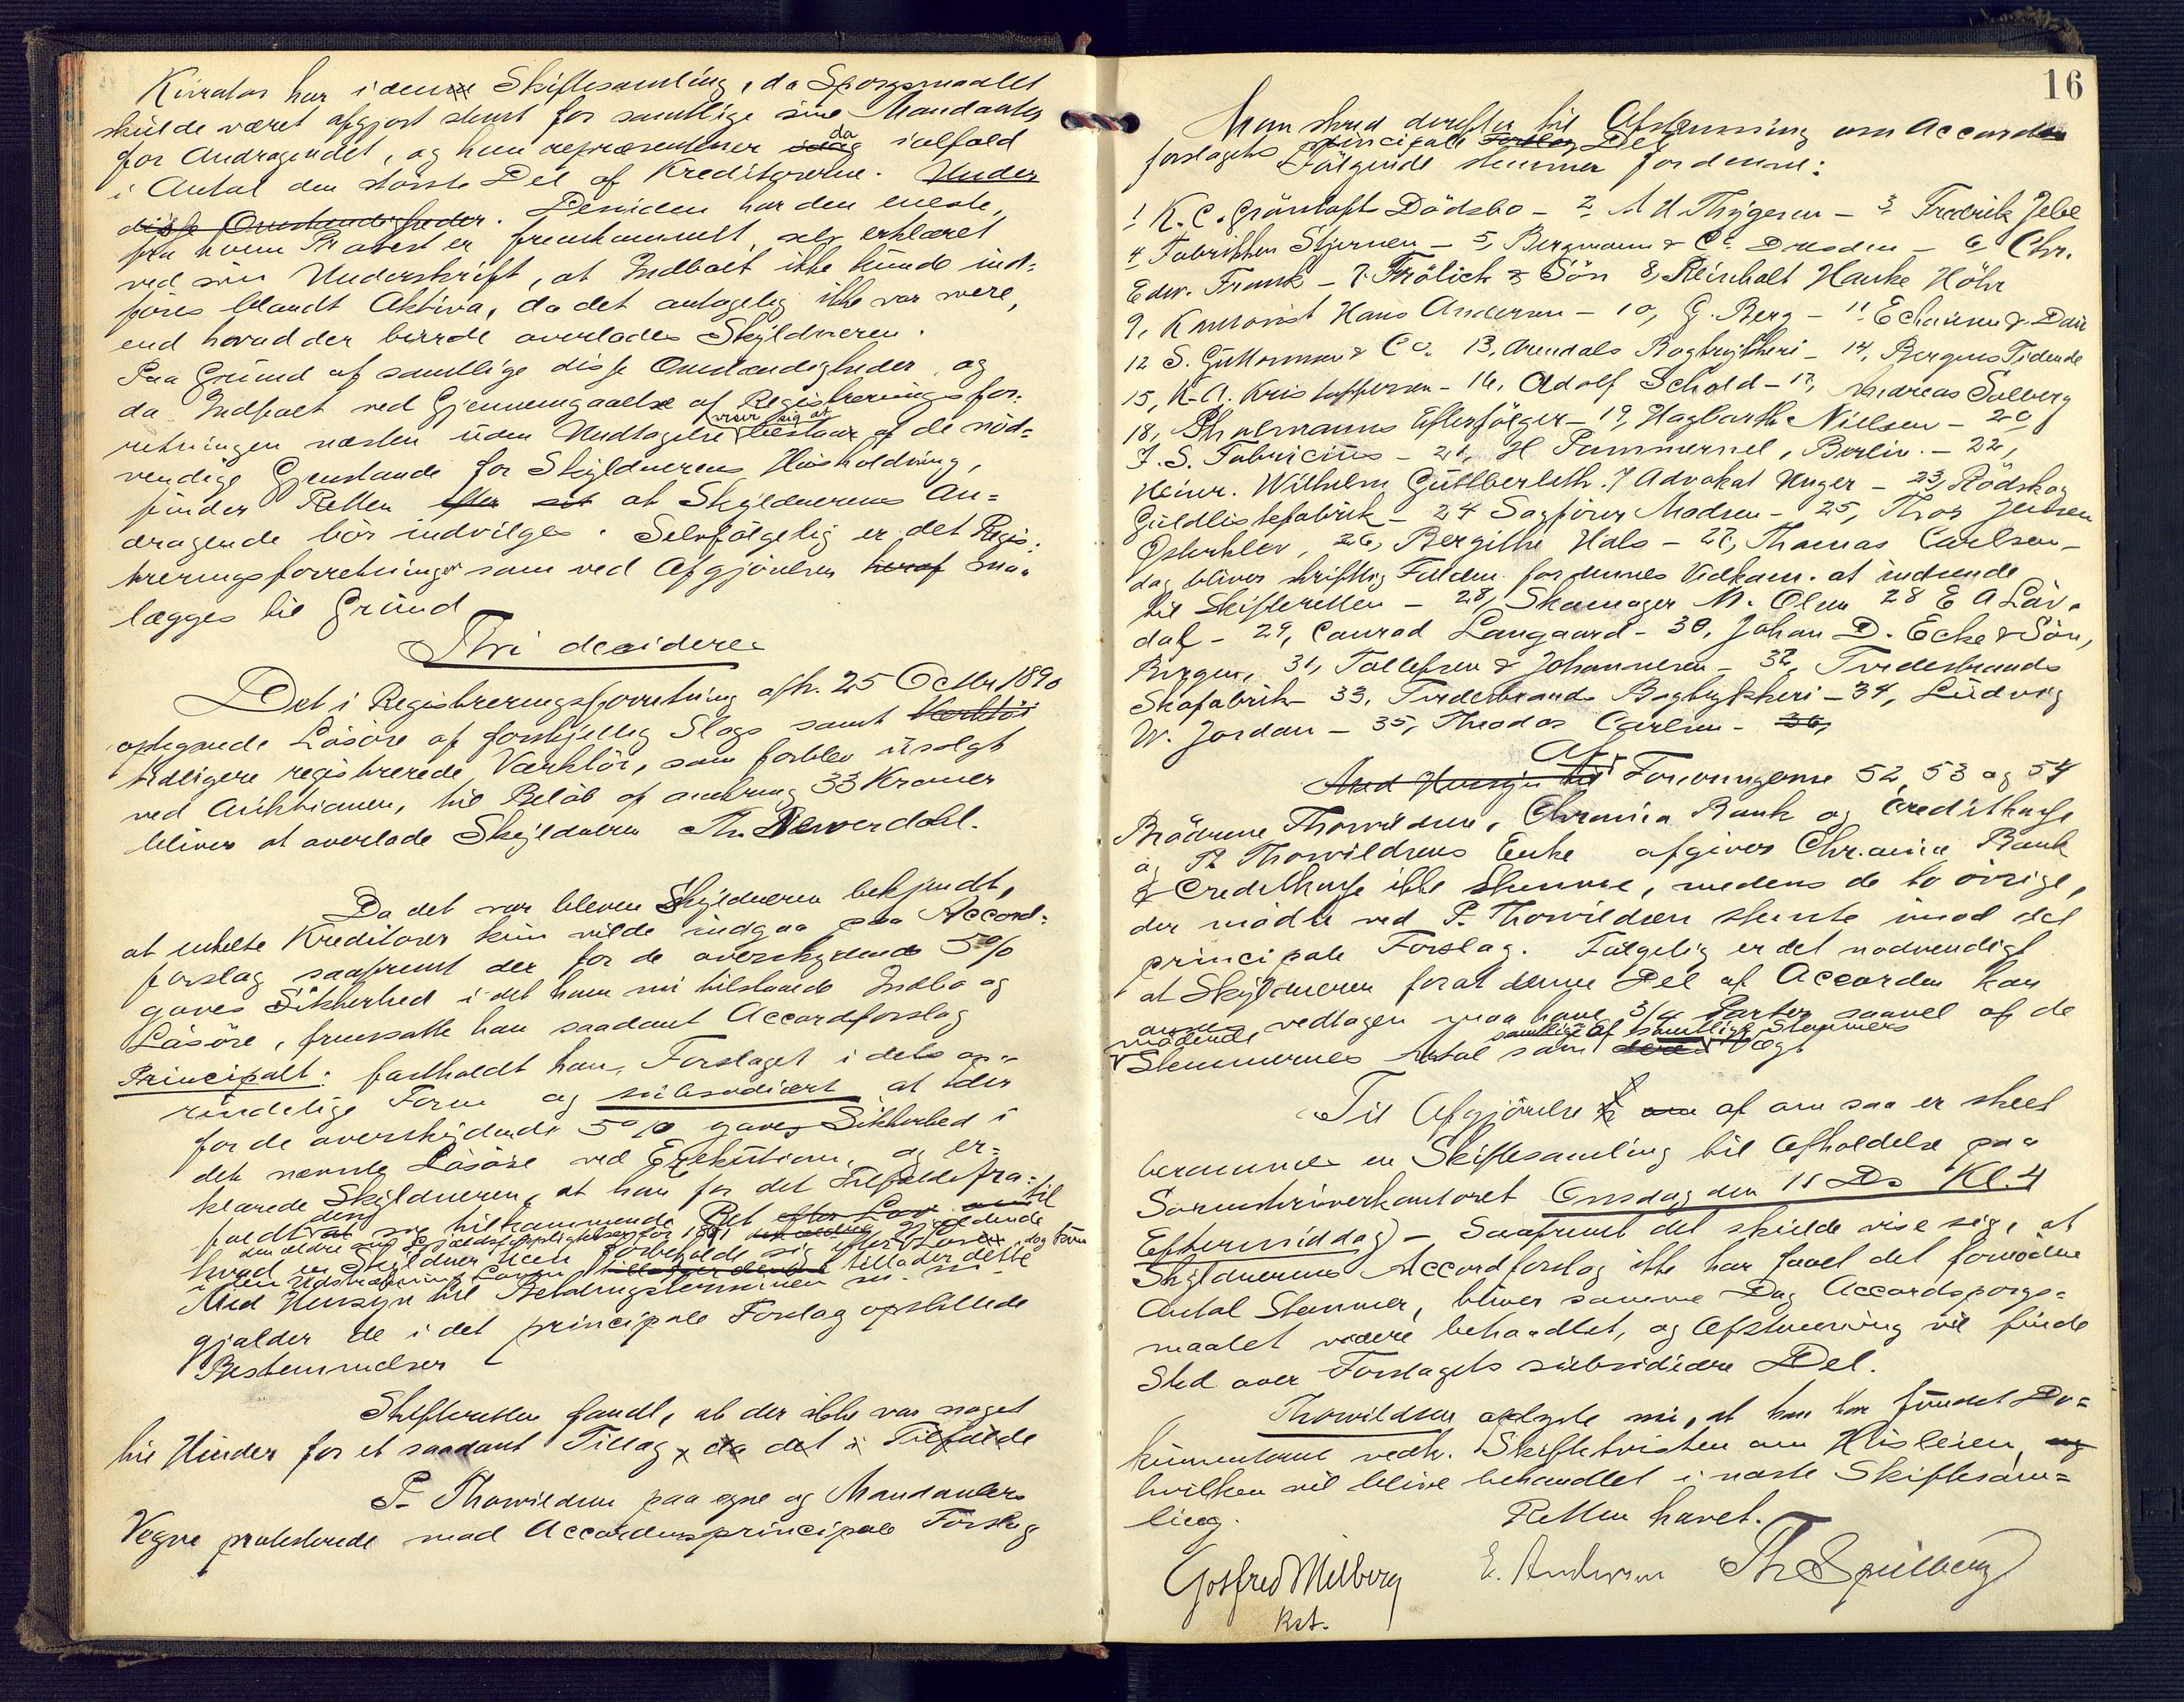 Kurator har i denne Skiftesamling, da Spørgsmaalet
skulde været afgjort stemt for samtlige sine Mandanter
for Andragendet, og han repræsenterer da ialfald
i Antal den største Del af Kreditorerne. Under
disse Omstændigheder. Desuden har den eneste,
fra hvem Protest er fremkommet, selv erklæret
ved sin Underskrift, at Indboet ikke kunde ind-
føres blandt Aktiva, da det antagelig ikke var mere,
end hvad der burde overlades Skyldneren.
Paa Grund af samtlige disse Omstændigheder og
da Indboet ved Gjennemgaaelse af Registreringsfor-
retningen næsten uden Undtagelse viser sig at bestaar af de nød-
vendige Gjenstande for Skyldnerens Husholdning,
finder Retten at Skyldnerens An-
dragende bör indvilges. Selvfölgelig er det Regis-
treringsforretningen som ved Afgjörelsen heraf maa
lægges til Grund
Thi decideres
Det i Registreringsforretning afh. 25 Octbr. 1890
optegnede Lösöre af forskjellig Slags samt Verktöi
tidligere registrerede Værktöi, som forblev usolgt
ved Auktionen, til Belöb af omkring 33 Kroner
bliver at overlade Skyldneren Th. Neverdahl.
Da det var bleven Skyldneren bekjendt,
at enkelte Kreditorer kun vilde indgaa paa Accord-
forslag saafremt der for de overskydende 5%
gaves Sikkerhed i det ham nu tilstaaede Indbo og
Lösöre, fremsatte han saadant Accordforslag
Principalt: fastholdt han Forslaget i dets op-
rindelige Form og subsidiært at der
for de overskydende 5% gaves Sikkerhed i
det nævnte Lösöre ved Exekution, og er-
klærede Skyldneren, at han for det Tilfælde fra-
faldt den ham tilkommende Ret til
hvad en Skyldner kan forbeholde sig
tillader dette
Med Hensyn til Betalingsterminen m. m.
gjælder de i det principale Forslag opstillede
Bestemmelser
Skifteretten fandt, at der ikke var noget
til Hinder for et saadant Tillæg, da det i Tilfælde
P. Thorvildsen paa egne og Mandanters
Vegne protesterede mod Accordens principale Forslag
16
Man skred derefter til Afstemning om Accords
forslagets principale Forslag Del
Følgende stemmer for denne:
1 K. C. Gröntoft Dödsbo – 2 A H Thygesen – 3 Fredrik Jebe
4 Fabrikken Stjernen – 5, Bergmann & Co. Dresden – 6, Chr.
Edw. Frank – 7. Frölich & Sön 8, Reinholt Hanke Höhr
9, Kantorist Hans Andersen – 10, G. Berg – 11
12 S. Guttormsen & Co. 13, Arendals Bogtrykkeri – 14, Bergens Tidende
15, K. A. Kristoffersen – 16, Adolf Schold – 17, Andreas Solberg
18, Efterfölger – 19, Hagbarth Nielsen – 20
J. S. Fabricius – 21, H Pommernel, Berlin. – 22,
Heinr. Wilhelm Advokat Unger – 23, Rödskog
Guldlistefabrik – 24 Sagförer Madsen – 25, Thor Jensen
Osterklev, 26, Bergithe Hals – 27, Thomas Carlsen –
dog bliver skriftlig Fuldm. for dennes Vedkom. at indsende
til Skifteretten – 28, Skomager M. Olsen 28 E A Löv-
dal – 29, Conrad Langaard – 30, Johan D. Ecke & Sön,
Bergen, 31, Tollefsen & Johannesen – 32, Tvedestrands
Skofabrik – 33, Tvedestrands Bogtrykkeri – 34, Ludvig
W. Jordan – 35, Theodor Carlsen – 36,
Af
Med Hensyn til Fordringerne 52, 53 og 54
Brödrene Thorvildsen, Chr.ania Bank og Creditkasse
og P. Thorvildsens Enke afgiver Chr.ania Bank
& Creditkasse ikke Stemme, medens de to övrige,
der mödte ved P. Thorvildsen stemte imod det
principale Forslag. Fölgelig er det nödvendigt
at Skyldneren forat denne Del af Accorden kan
ansees vedtagen maa have 3/4 Parter saavel af de
mödende Stemmernes Antal som deres samtlige Stemmers Vægt
Til Afgjörelse om af om saa er skeet
berammes en Skiftesamling til Afholdelse paa
Sorenskriverkontoret Onsdag den 11 Ds Kl. 4
Eftermiddag – Saafremt det skulde vise sig, at
Skyldnerens Accordforslag ikke har faaet det fornödne
Antal Stemmer, bliver samme Dag Accordspørgs-
maalet videre behandlet, og Afstemning vil finde
Sted over Forslagets subsidiære Del.
Thorvildsen oplyste nu, at han har fundet Do-
kumenterne vedk. Skiftetvisten om Husleien, og
hvilken vil blive behandlet i næste Skiftesam-
ling.
Retten hævet.
Gotfred Milberg E. Andersen Th Spilberg
Kst.